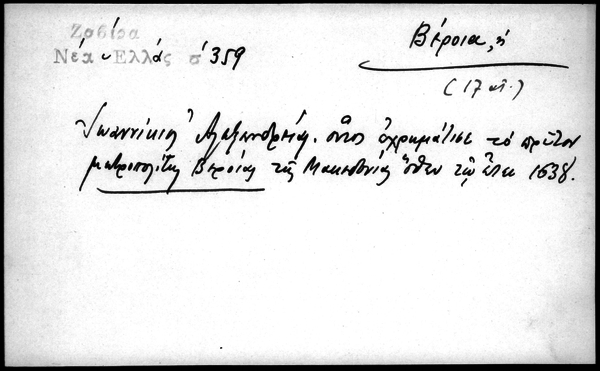 Ζαβίρα
Νέα Ἑλλάς σ 359
Βέροια, ἡ
(17 αἰ.)
Ἰωαννίκιος Ἀλεξανδρείας. οὗτος ἐχρημάτισε τὸ πρῶτον
μητροπολίτης Βεροίας τῆς Μακεδονίας ὅθεν τῷ ἔτει 1638.